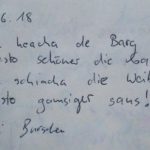 6. 18
heacha de Barg
sto schüner die
schiacha die Wei
sto gamsiger sans!
Burschen